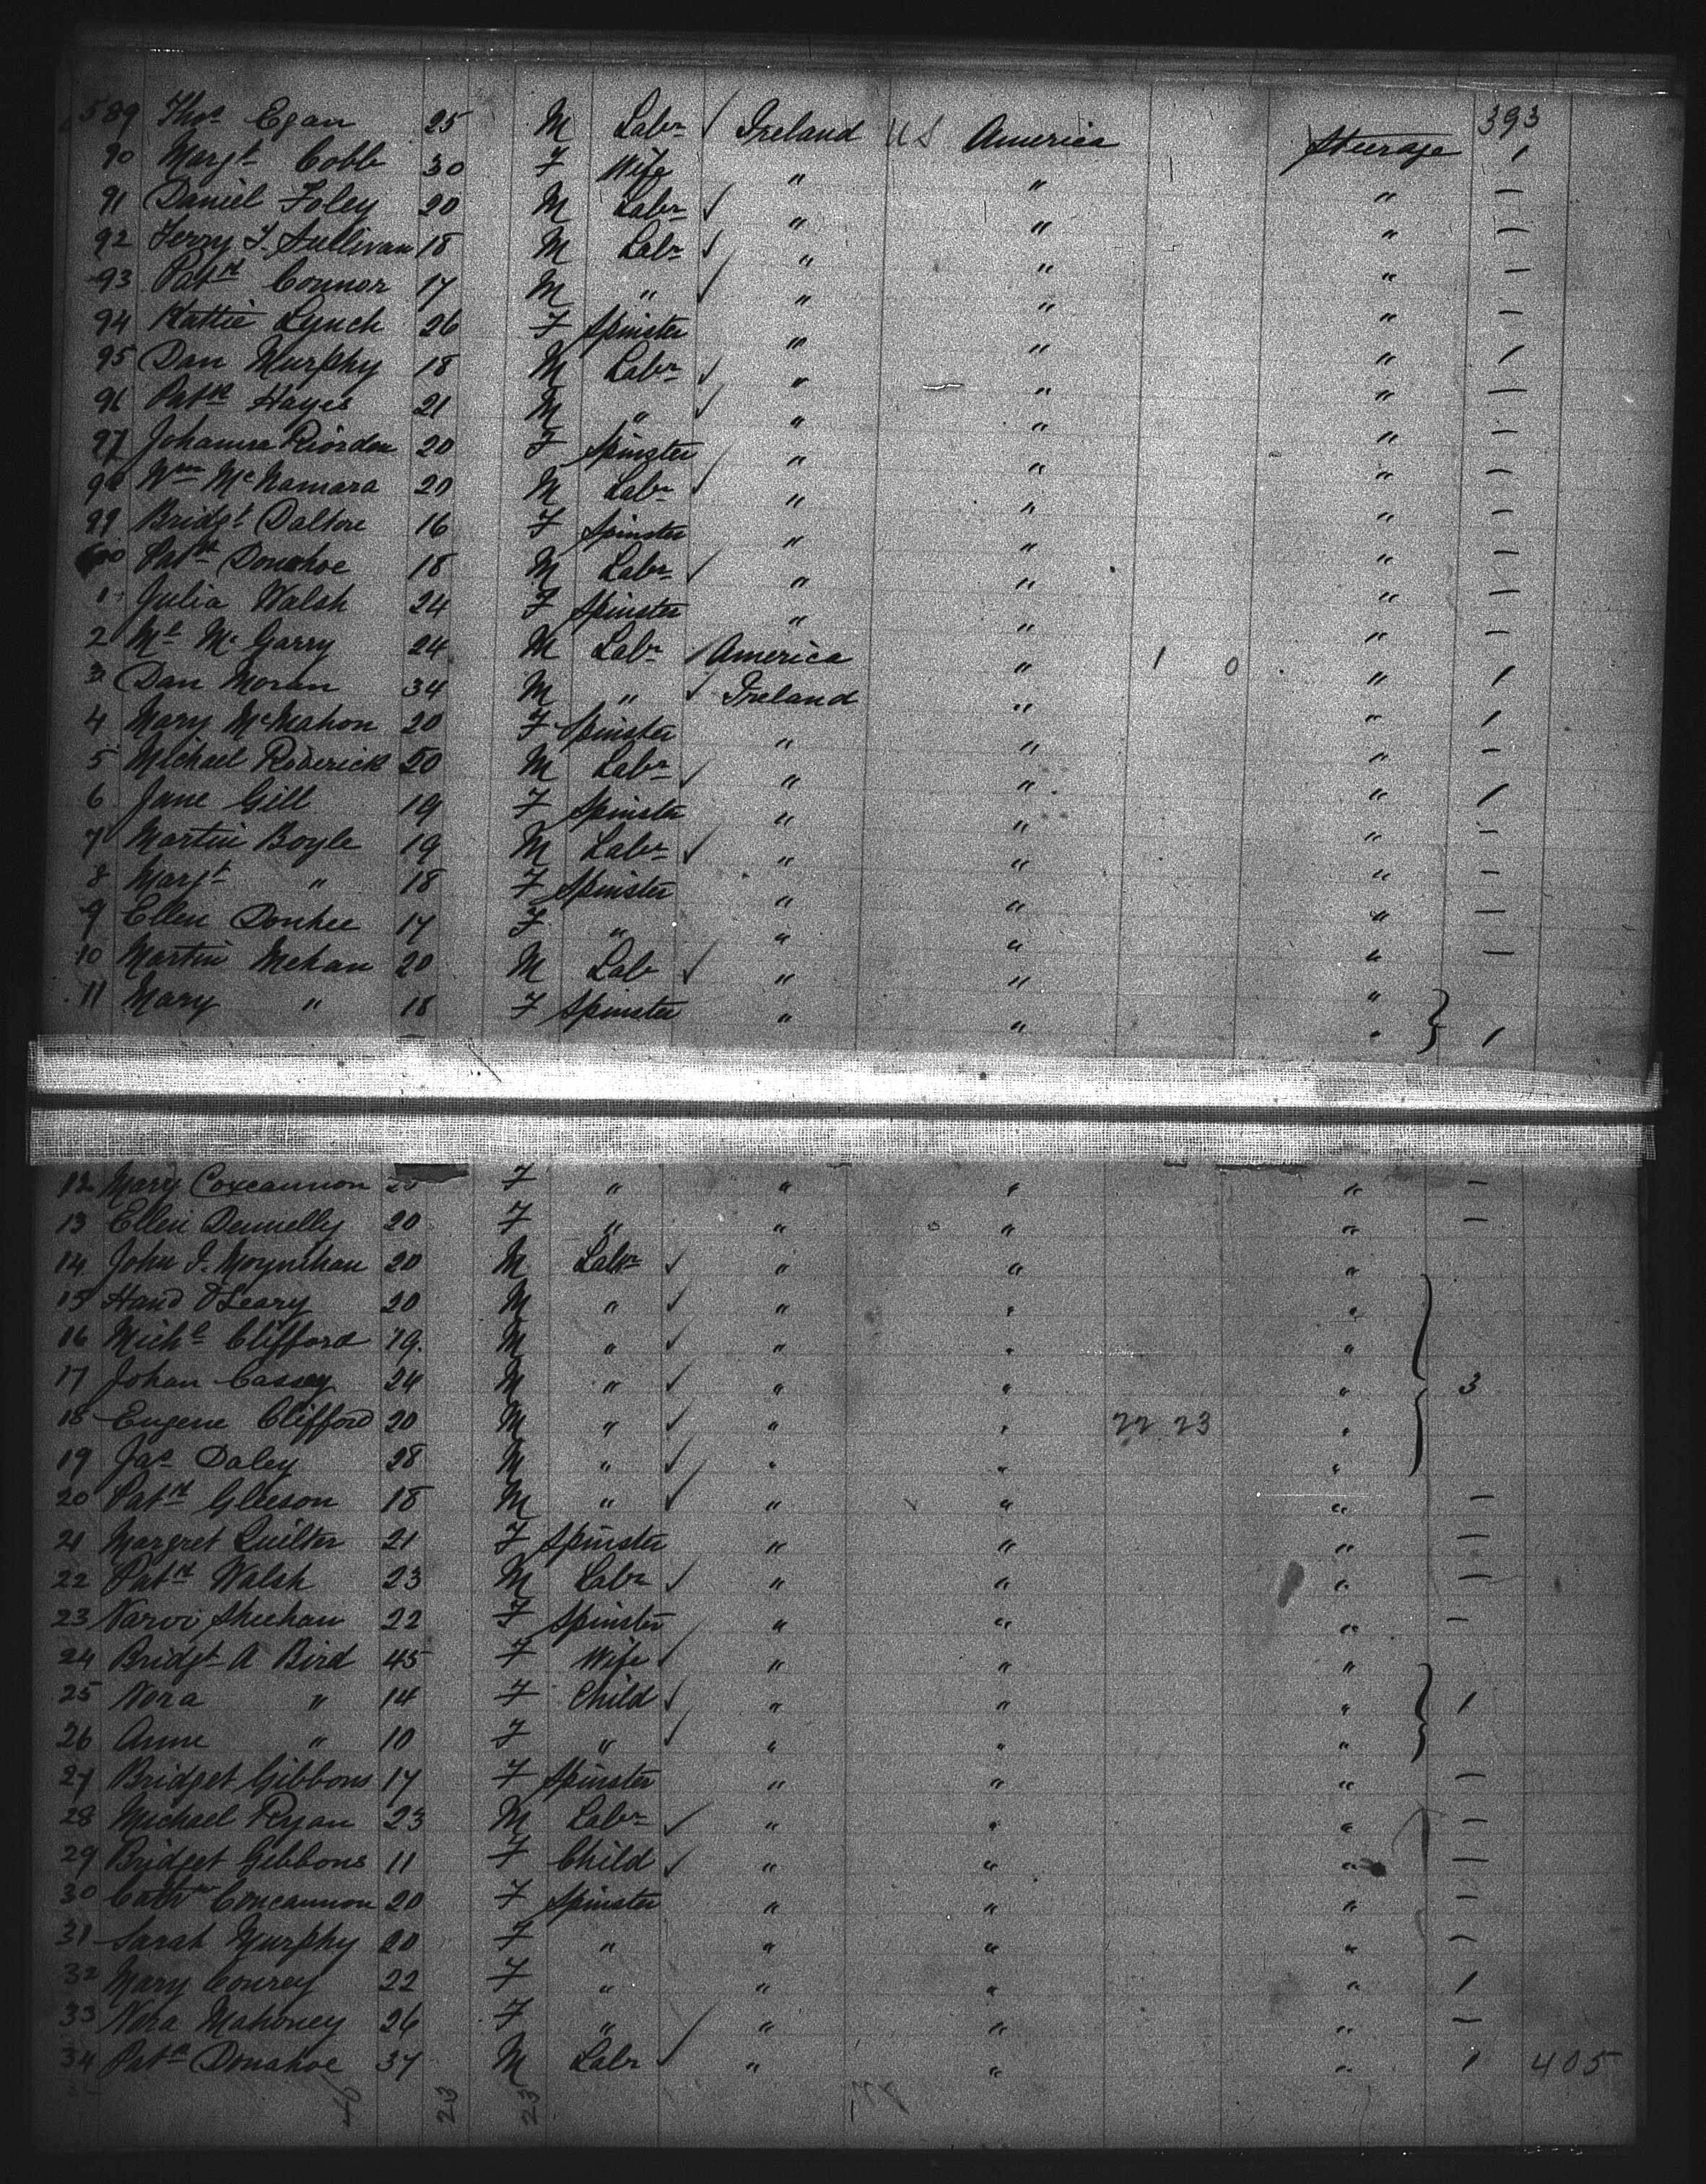 589 Thos Egan 25 M Labr ✓ Ireland US America Steerage 393
90 Margt Cobb 30 F Wife " " " 1
91 Daniel Foley 20 M Labr ✓ " " " —
92 Jerry J. Sullivan 18 M Labr ✓ " " " —
93 Patrk Connor 17 M " ✓ " " " —
94 Kattie Lynch 26 F Spinster " " " —
95 Dan Murphy 18 M Labr ✓ " " " 1
96 Patrk Hayes 21 M " ✓ " " " —
97 Johanna Riordan 20 F Spinster " " " —
98 Wm McNamara 20 M Labr ✓ " " " —
99 Bridgt Daltore 16 F Spinster " " " —
600 Patrk Donohoe 18 M Labr ✓ " " " —
1 Julia Walsh 24 F Spinster " " " —
2 Ml McGarry 24 M Labr ✓ America " 1 0 " —
3 Dan Moran 34 M " ✓ Ireland " " 1
4 Mary McMahon 20 F Spinster " " " 1
5 Michael Roderick 20 M Labr ✓ " " " —
6 Jane Gill 19 F Spinster " " " 1
7 Martin Boyle 19 M Labr ✓ " " " —
8 Margt " 18 F Spinster " " " —
9 Ellen Donhee 17 F " " " " —
10 Martin Mehan 20 M Lab ✓ " " " —
11 Mary " 18 F Spinster " " " } 1
12 Mary Coxcannon F " " " " —
13 Ellen Dennelly 20 F " " " " —
14 John J. Moynihan 20 M Labr ✓ " " "
15 Hand O'Leary 20 M " ✓ " " "
16 Michl Clifford 19. M " ✓ " " "
17 Johan Cassey 24 M " ✓ " " " } 3
18 Eugene Clifford 20 M " ✓ " " 22 23 "
19 Jas Daley 28 M " ✓ " " "
20 Patrk Gleeson 18 M " ✓ " " " —
21 Margret Quilter 21 F Spinster " " " —
22 Patrk Walsh 23 M Labr ✓ " " " —
23 Sheehan 22 F Spinster " " " —
24 Bridgt A Bird 45 F Wife ✓ " " "
25 Nora " 14 F Child ✓ " " " } 1
26 Anne " 10 F " ✓ " " "
27 Bridget Gibbons 17 F Spinster " " " —
28 Michael Ryan 23 M Labr ✓ " " " —
29 Bridget Gibbons 11 F Child ✓ " " " —
30 Cathr Concannon 20 F Spinster " " " —
31 Sarah Murphy 20 F " " " " —
32 Mary Conrey 22 F " " " " 1
33 Nora Mahoney 26 F " ✓ " " " —
34 Patrk Donahoe 37 M Labr ✓ " " " 1 405
23 23